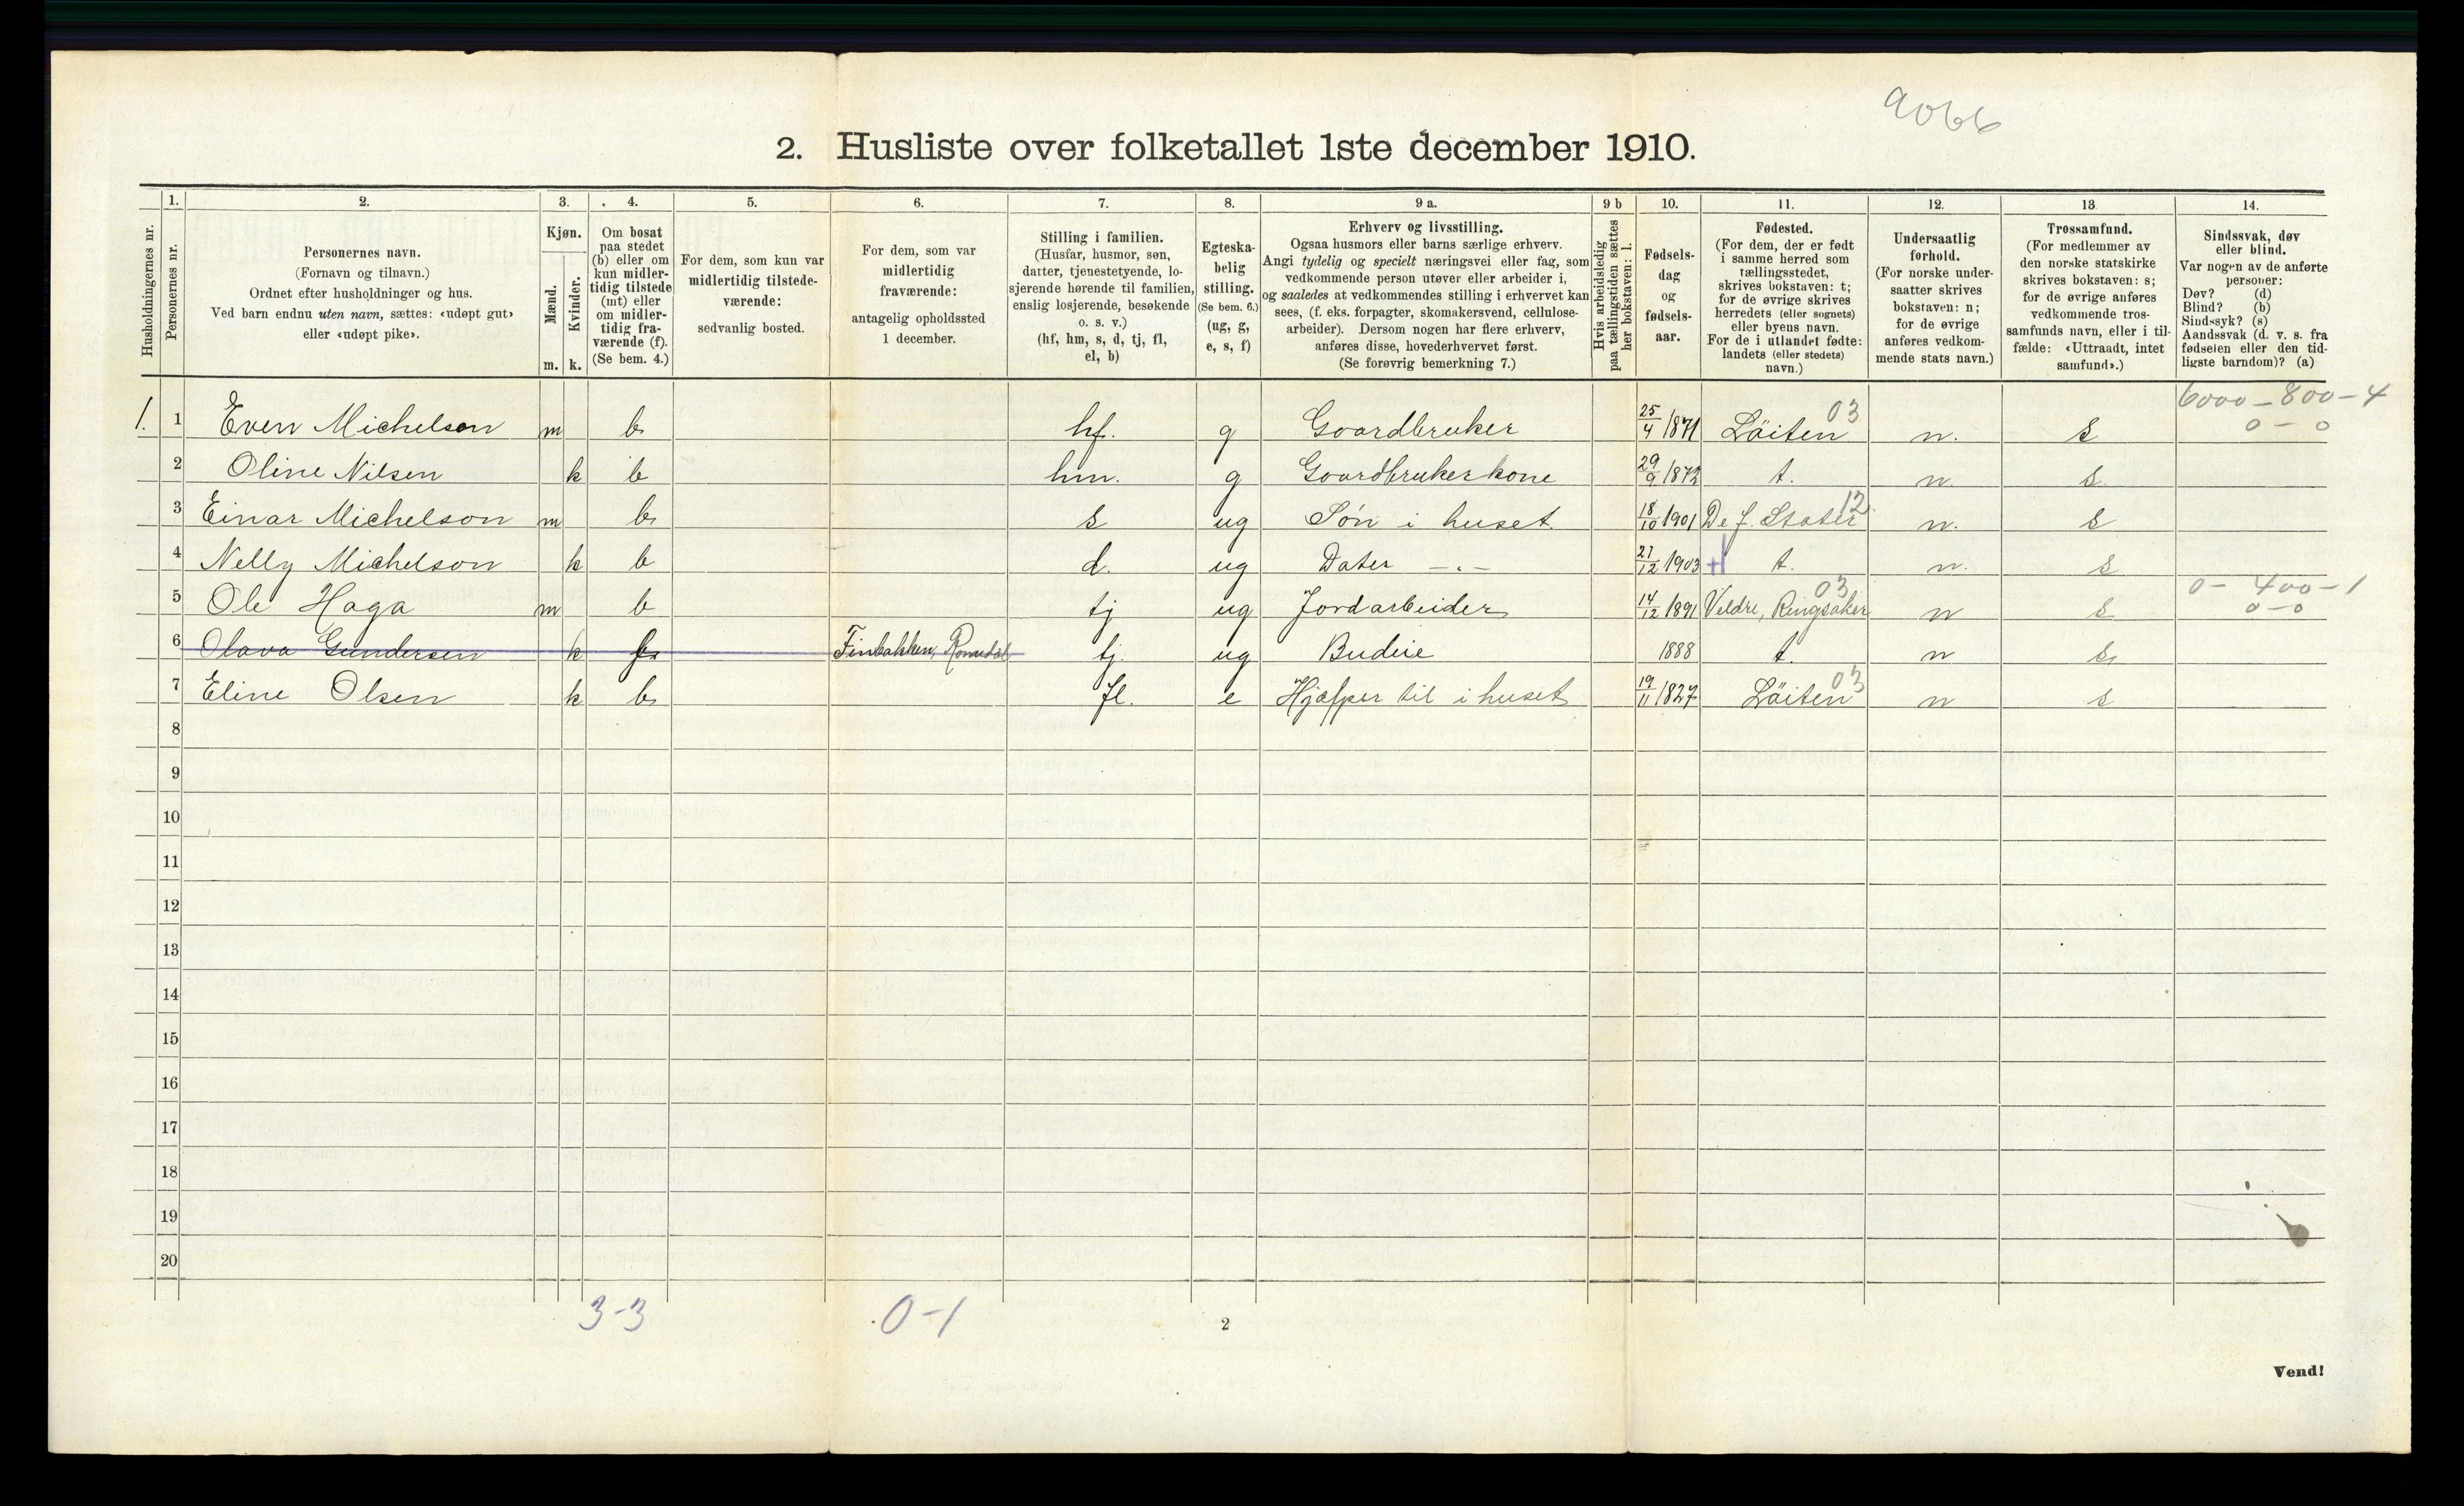 9066
2. Husliste over folketallet 1ste december 1910.
Husholdningernes nr.
1.
Personernes nr.
2.
Personernes navn.
(Fornavn og tilnavn.)
Ordnet efter husholdninger og hus.
Ved barn endnu uten navn, sættes: «udøpt gut»
eller «udøpt pike».
3.
Kjøn.
Mænd.
Kvinder.
m. k.
4.
Om bosat
paa stedet
(b) eller om
kun midler-
tidig tilstede
(mt) eller
om midler-
tidig fra-
værende (f).
(Se bem. 4.)
5.
For dem, som kun var
midlertidig tilstede-
værende:
sedvanlig bosted.
6.
For dem, som var
midlertidig
fraværende:
antagelig opholdssted
1 december.
7.
Stilling i familien.
(Husfar, husmor, søn,
datter, tjenestetyende, lo-
sjerende hørende til familien,
enslig losjerende, besøkende
o. s. v.)
(hf, hm, s, d, tj, fl,
el, b)
8.
Egteska-
belig
stilling.
(Se bem. 6.)
(ug, g,
e, s, f)
9 a.
Erhverv og livsstilling.
Ogsaa husmors eller barns særlige erhverv.
Angi tydelig og specielt næringsvei eller fag, som
vedkommende person utøver eller arbeider i,
og saaledes at vedkommendes stilling i erhvervet kan
sees, (f. eks. forpagter, skomakersvend, cellulose-
arbeider). Dersom nogen har flere erhverv,
anføres disse, hovederhvervet først.
(Se forøvrig bemerkning 7.)
9 b
Hvis arbeidsledig
paa tællingstiden sættes
her bokstaven: l.
10.
Fødsels-
dag
og
fødsels-
aar.
11.
Fødested.
(For dem, der er født
i samme herred som
tællingsstedet,
skrives bokstaven: t;
for de øvrige skrives
herredets (eller sognets)
eller byens navn.
For de i utlandet fødte:
landets (eller stedets)
navn.)
12.
Undersaatlig
forhold.
(For norske under-
saatter skrives
bokstaven: n;
for de øvrige
anføres vedkom-
mende stats navn.)
13.
Trossamfund.
(For medlemmer av
den norske statskirke
skrives bokstaven: s;
for de øvrige anføres
vedkommende tros-
samfunds navn, eller i til-
fælde: «Uttraadt, intet
samfund».)
14.
Sindssvak, døv
eller blind.
Var nogen av de anførte
personer:
Døv? (d)
Blind? (b)
Sindssyk? (s)
Aandssvak (d. v. s. fra
fødselen eller den tid-
ligste barndom)? (a)
6000 - 800 - 4
1. 1 Even Michelson m b hf. g Gaardbruker 25/4 1871 Löiten 03 n. s 0 - 0
2 Oline Nilsen k b hm. g Gaardbrukerkone 29/9 1872 t. n. s.
3 Einar Michelson m b s ug Søn i huset. 18/10 1901 De f. Stater 12 n. s
4 Nelly Michelson k b d. ug Dater -"- 21/12 1903 + t. n. s
5 Ole Haga m b tj ug Jordarbeider 14/12 1891 Veldre, Ringsaker 03 n s 0 - 400 - 1
0 - 0
6 Olava Gundersen k f Finbakken, Romedal tj. ug Budeie 1888 t. n s
7 Eline Olsen k b fl. e Hjælper til i huset 19/11 1827 Löiten 03 n s
8
9
10
11
12
13
14
15
16
17
18
19
20
3-3 0-1
2
Vend!